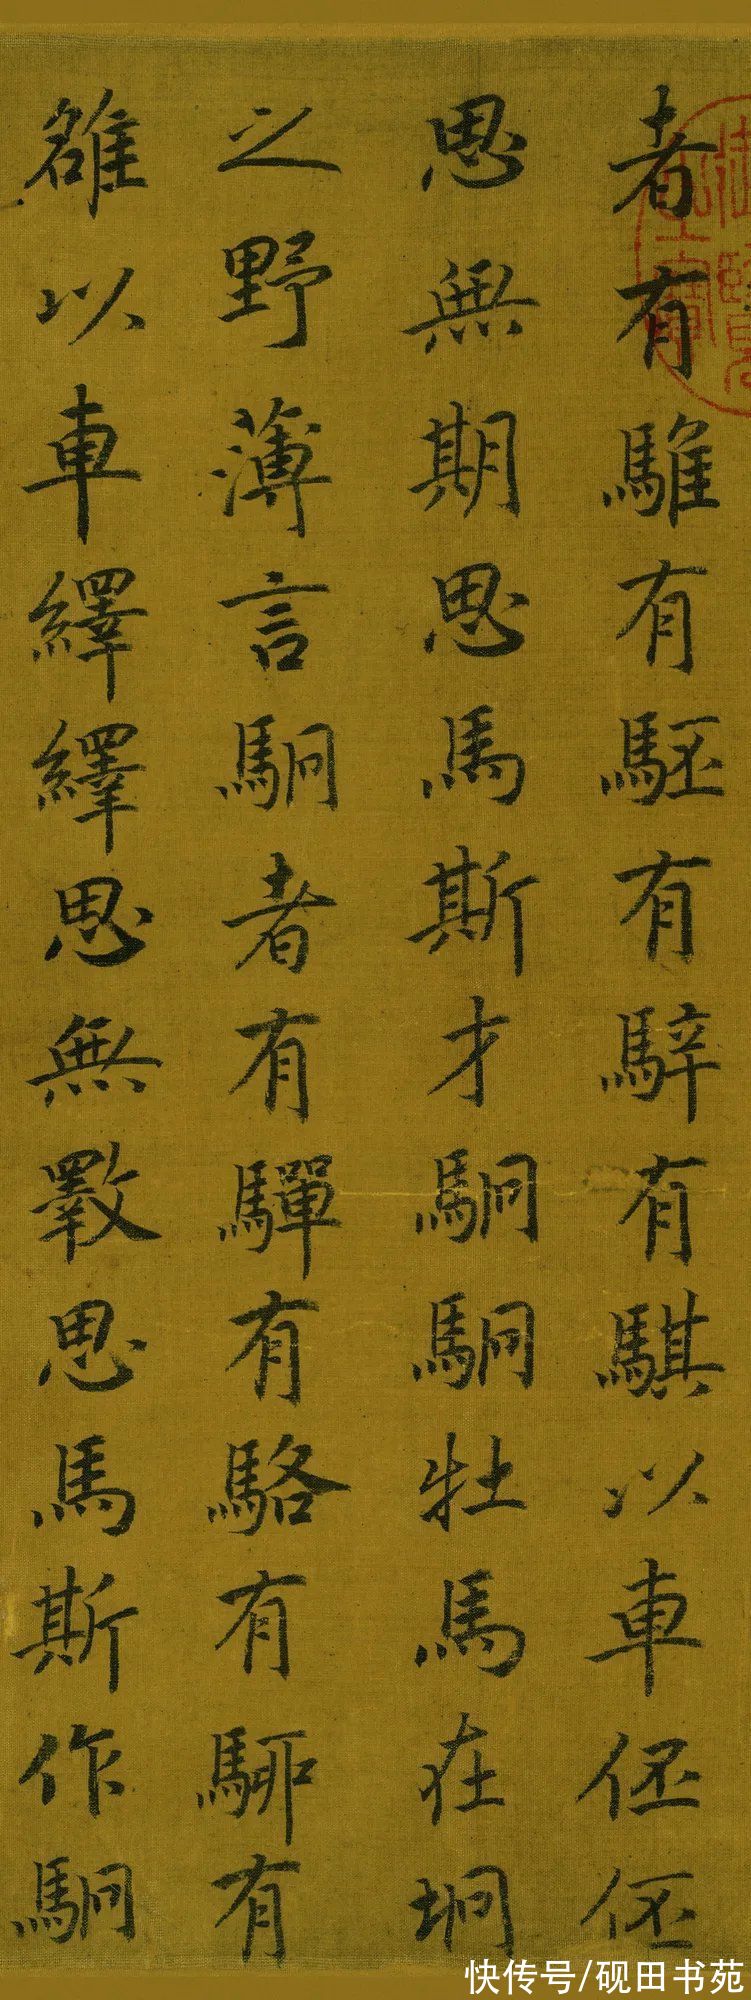 者有騅有駓有騂有騏以車伾伾
思無期思馬斯才駉駉牡馬在坰
之野薄言駉者有驒有駱有駵有
雒以車繹繹思無斁思馬斯作駉
快传号/砚田书苑